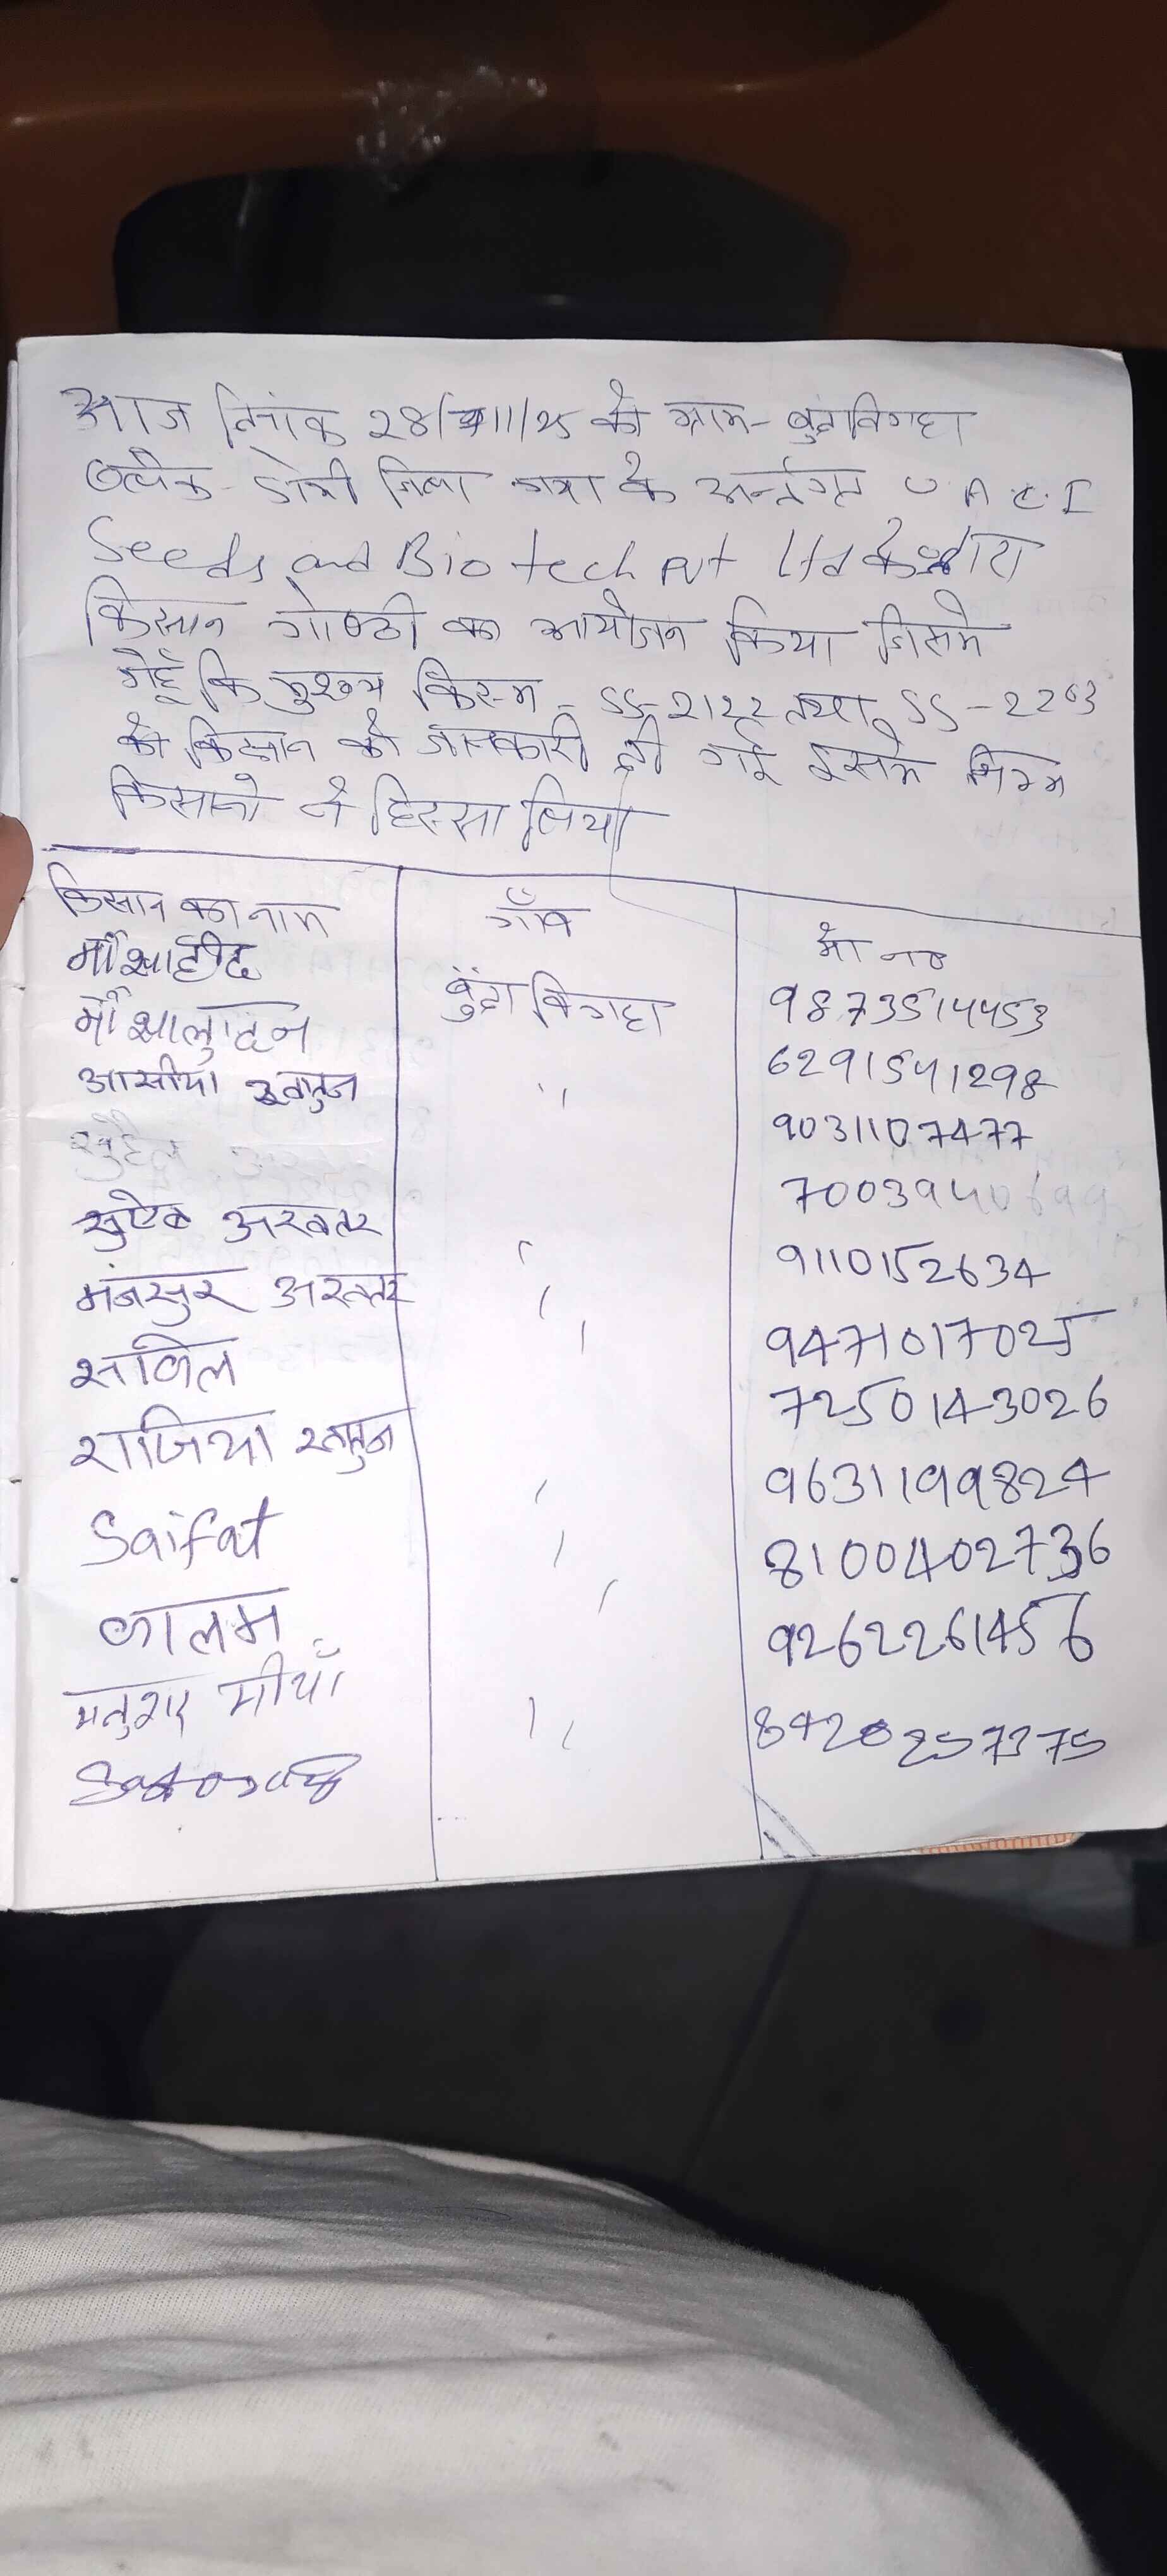 आज दिनांक 28/11/25 को ग्राम- बुंदाविगहा
डोभी जिला गया के अर्न्तगत U A C I
Seeds and Biotech Pvt Ltd के द्वारा
किसान गोष्ठी का आयोजन किया जिसमे
गेहूँ कि मुख्य किस्म - SS-2122 तथा SS-2203
की किसान को जानकारी दी गई इसमे निम्न
किसानो ने हिस्सा लिया
किसान का नाम गाँव मो न०
मो शाहीद बुंदा विगहा 9873514453
मो 6291541298
आसीया खातुन " 9031107477
सुहैल 7003940699
सुऐब अख्तर 9110152634
मंजसुर अख्तर 9471017025
साविल 7250143026
राजिया खातुन 9631199824
Saifat 8100402736
कालम 9262261456
मीयाँ " 8420257375